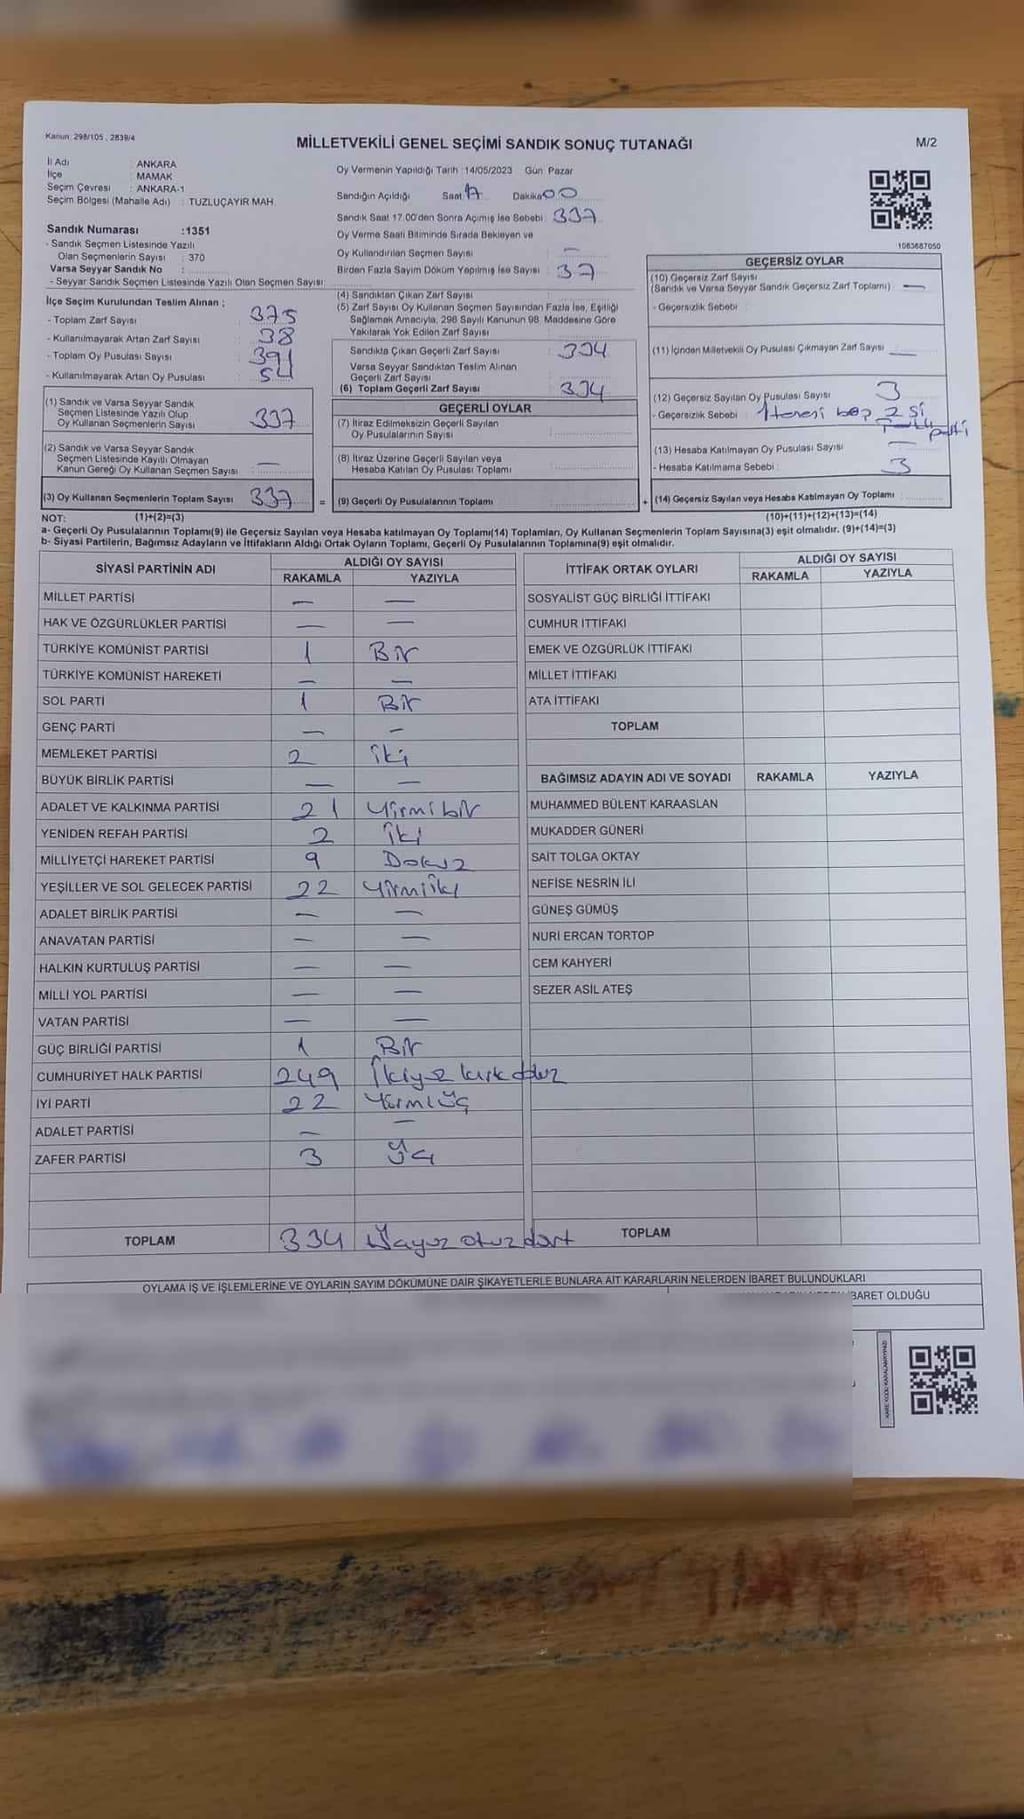 Kanun: 298/105 , 2839/4
MİLLETVEKİLİ GENEL SEÇİMİ SANDIK SONUÇ TUTANAĞI
M/2
İl Adı : ANKARA
İlçe : MAMAK
Seçim Çevresi : ANKARA-1
Seçim Bölgesi (Mahalle Adı) : TUZLUÇAYIR MAH.
Oy Vermenin Yapıldığı Tarih :14/05/2023 Gün Pazar
Sandığın Açıldığı Saat 17 Dakika 00
Sandık Saat 17.00'den Sonra Açımış İse Sebebi : 337
Oy Verme Saati Bitiminde Sırada Bekleyen ve
Oy Kullandırılan Seçmen Sayısı —
Birden Fazla Sayım Döküm Yapılmış İse Sayısı : 37
1063687050
Sandık Numarası :1351
- Sandık Seçmen Listesinde Yazılı
Olan Seçmenlerin Sayısı : 370
Varsa Seyyar Sandık No :
- Seyyar Sandık Seçmen Listesinde Yazılı Olan Seçmen Sayısı:
İlçe Seçim Kurulundan Teslim Alınan ;
- Toplam Zarf Sayısı 375
- Kullanılmayarak Artan Zarf Sayısı 38
- Toplam Oy Pusulası Sayısı 391
- Kullanılmayarak Artan Oy Pusulası 54
(1) Sandık ve Varsa Seyyar Sandık
Seçmen Listesinde Yazılı Olup
Oy Kullanan Seçmenlerin Sayısı 337
(2) Sandık ve Varsa Seyyar Sandık
Seçmen Listesinde Kayıtlı Olmayan
Kanun Gereği Oy Kullanan Seçmen Sayısı —
(3) Oy Kullanan Seçmenlerin Toplam Sayısı 337
(1)+(2)=(3)
(4) Sandıktan Çıkan Zarf Sayısı
(5) Zarf Sayısı Oy Kullanan Seçmen Sayısından Fazla İse, Eşitliği
Sağlamak Amacıyla, 298 Sayılı Kanunun 98. Maddesine Göre
Yakılarak Yok Edilen Zarf Sayısı
Sandıkta Çıkan Geçerli Zarf Sayısı 334
Varsa Seyyar Sandıktan Teslim Alınan
Geçerli Zarf Sayısı
(6) Toplam Geçerli Zarf Sayısı 334
GEÇERLİ OYLAR
(7) İtiraz Edilmeksizin Geçerli Sayılan
Oy Pusulalarının Sayısı
(8) İtiraz Üzerine Geçerli Sayılan veya
Hesaba Katılan Oy Pusulası Toplamı
= (9) Geçerli Oy Pusulalarının Toplamı
GEÇERSİZ OYLAR
(10) Geçersiz Zarf Sayısı
(Sandık ve Varsa Seyyar Sandık Geçersiz Zarf Toplamı) —
- Geçersizlik Sebebi :
(11) İçinden Milletvekili Oy Pusulası Çıkmayan Zarf Sayısı —
(12) Geçersiz Sayılan Oy Pusulası Sayısı 3
- Geçersizlik Sebebi : 1 tanesi boş 2 si
(13) Hesaba Katılmayan Oy Pusulası Sayısı —
- Hesaba Katılmama Sebebi : 3
+ (14) Geçersiz Sayılan veya Hesaba Katılmayan Oy Toplamı
(10)+(11)+(12)+(13)=(14)
NOT:
a- Geçerli Oy Pusulalarının Toplamı(9) ile Geçersiz Sayılan veya Hesaba katılmayan Oy Toplamı(14) Toplamları, Oy Kullanan Seçmenlerin Toplam Sayısına(3) eşit olmalıdır. (9)+(14)=(3)
b- Siyasi Partilerin, Bağımsız Adayların ve İttifakların Aldığı Ortak Oyların Toplamı, Geçerli Oy Pusulalarının Toplamına(9) eşit olmalıdır.
SİYASİ PARTİNİN ADI
ALDIĞI OY SAYISI
RAKAMLA YAZIYLA
MİLLET PARTİSİ — —
HAK VE ÖZGÜRLÜKLER PARTİSİ — —
TÜRKİYE KOMÜNİST PARTİSİ 1 Bir
TÜRKİYE KOMÜNİST HAREKETİ — —
SOL PARTİ 1 Bir
GENÇ PARTİ — —
MEMLEKET PARTİSİ 2 iki
BÜYÜK BİRLİK PARTİSİ — —
ADALET VE KALKINMA PARTİSİ 21 Yirmibir
YENİDEN REFAH PARTİSİ 2 İki
MİLLİYETÇİ HAREKET PARTİSİ 9 Dokuz
YEŞİLLER VE SOL GELECEK PARTİSİ 22 Yirmiiki
ADALET BİRLİK PARTİSİ — —
ANAVATAN PARTİSİ — —
HALKIN KURTULUŞ PARTİSİ — —
MİLLİ YOL PARTİSİ — —
VATAN PARTİSİ — —
GÜÇ BİRLİĞİ PARTİSİ 1 Bir
CUMHURİYET HALK PARTİSİ 249 İkiyüz kırk dokuz
İYİ PARTİ 22 Yirmiüç
ADALET PARTİSİ — —
ZAFER PARTİSİ 3 Üç
TOPLAM 334 Üçyüz otuz dört
İTTİFAK ORTAK OYLARI
ALDIĞI OY SAYISI
RAKAMLA YAZIYLA
SOSYALİST GÜÇ BİRLİĞİ İTTİFAKI
CUMHUR İTTİFAKI
EMEK VE ÖZGÜRLÜK İTTİFAKI
MİLLET İTTİFAKI
ATA İTTİFAKI
TOPLAM
BAĞIMSIZ ADAYIN ADI VE SOYADI RAKAMLA YAZIYLA
MUHAMMED BÜLENT KARAASLAN
MUKADDER GÜNERİ
SAİT TOLGA OKTAY
NEFİSE NESRİN İLİ
GÜNEŞ GÜMÜŞ
NURİ ERCAN TORTOP
CEM KAHYERİ
SEZER ASİL ATEŞ
TOPLAM
OYLAMA İŞ VE İŞLEMLERİNE VE OYLARIN SAYIM DÖKÜMÜNE DAİR ŞİKAYETLERLE BUNLARA AİT KARARLARIN NELERDEN İBARET BULUNDUKLARI
İBARET OLDUĞU
KARE KODU KARALAMAYINIZ!